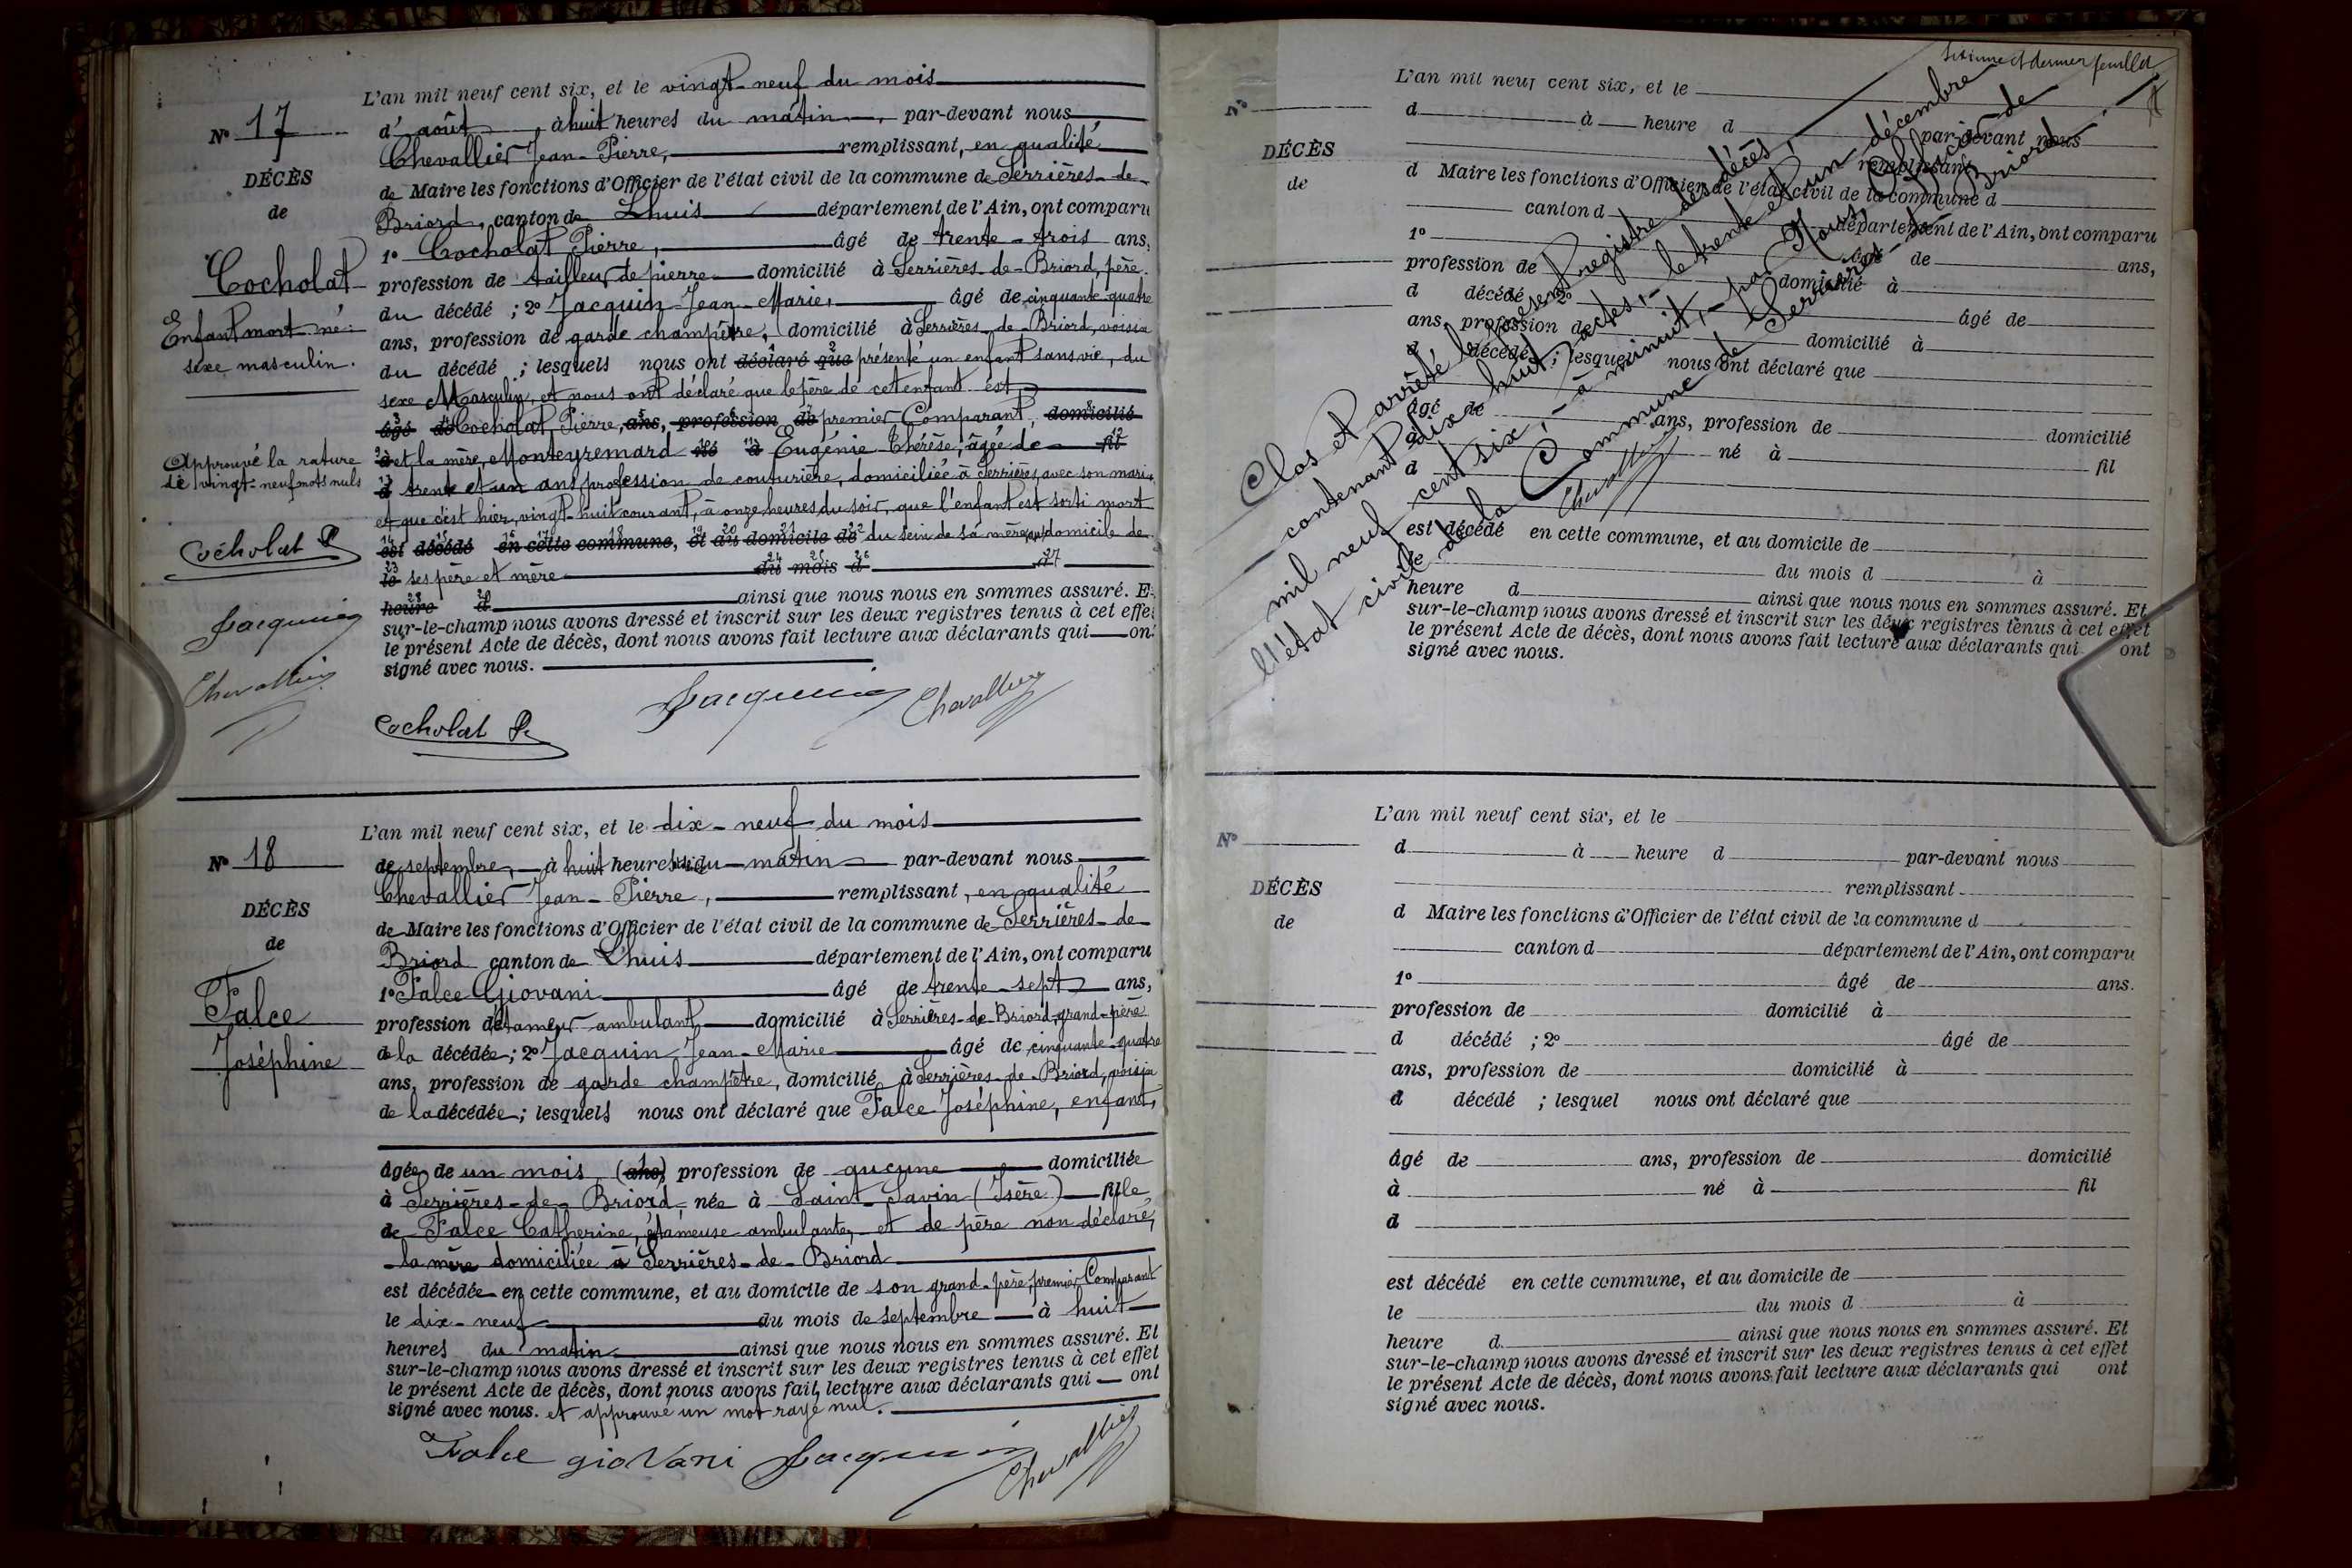 L'an mil neuf cent six, et le vingt-neuf du mois
N° 17
d'août, à huit heures du matin, par-devant nous
Chevallier Jean-Pierre, remplissant, en qualité
DÉCÈS
de Maire les fonctions d'Officier de l'état civil de la commune de Serrières-de-
de
Briord, canton de Lhuis département de l'Ain, ont comparu
1° Cocholat Pierre, âgé de trente-trois ans,
Cocholat
profession de tailleur de pierre domicilié à Serrières-de-Briord, père
du décédé ; 2° Jacquin Jean-Marie, âgé de cinquante-quatre
Enfant mort-né :
ans, profession de garde champêtre, domicilié à Serrières-de-Briord, voisin
sexe masculin.
du décédé ; lesquels nous ont déclaré que présenté un enfant sans vie, du
sexe Masculin, et nous ont déclaré que le père de cet enfant est,
âgé de Cocholat, Pierre, ans, profession de premier Comparant, domicilié
à et la mère, Monteyremard né à Eugénie Thérèse, âgée de fil
Approuvé la rature
de vingt-neuf mots nuls
d trente et un ans, profession de couturière, domiciliée à Serrières, avec son mari,
et que c'est hier, vingt-huit courant, à onze heures du soir, que l'enfant est sorti mort
est décédé en cette commune, et au domicile de du sein de sa mère, au domicile de
Cocholat P
le ses père et mère du mois d
heure d ainsi que nous nous en sommes assuré. Et
sur-le-champ nous avons dressé et inscrit sur les deux registres tenus à cet effet
Jacquin
le présent Acte de décès, dont nous avons fait lecture aux déclarants qui ont
signé avec nous.
Chevallier
Cocholat P. Jacquin Chevallier
L'an mil neuf cent six, et le dix-neuf du mois
N° 18
de septembre, à huit heures du matin par-devant nous
Chevallier Jean-Pierre, remplissant, en qualité
DÉCÈS
de Maire les fonctions d'Officier de l'état civil de la commune de Serrières-de-
de
Briord canton de Lhuis département de l'Ain, ont comparu
1° Falce Giovani âgé de trente-sept ans,
Falce
profession d'étameur ambulant domicilié à Serrières-de-Briord, grand-père
Joséphine
de la décédée ; 2° Jacquin Jean-Marie âgé de cinquante-quatre
ans, profession de garde champêtre, domicilié à Serrières-de-Briord, voisin
de la décédée ; lesquels nous ont déclaré que Falce Joséphine, enfant,
âgée de un mois (ans) profession de aucune domiciliée
à Serrières-de-Briord, née à Saint-Savin (Isère) fille
de Falce Catherine, étameuse ambulante, et de père non déclaré,
la mère domiciliée à Serrières-de-Briord
est décédée en cette commune, et au domicile de son grand-père, premier Comparant
le dix-neuf du mois de septembre à huit
heures du matin ainsi que nous nous en sommes assuré. Et
sur-le-champ nous avons dressé et inscrit sur les deux registres tenus à cet effet
le présent Acte de décès, dont nous avons fait lecture aux déclarants qui ont
signé avec nous. et approuvé un mot rayé nul.
Falce gioVani Jacquin Chevallier
et dernier feuillet
L'an mil neuf cent six, et le
N°
d à heure d par-devant nous
remplissant
DÉCÈS
d Maire les fonctions d'Officier de l'état civil de la commune d
de
canton d département de l'Ain, ont comparu
1° âgé de ans,
profession de domicilié à
d décédé ; 2° âgé de
ans, profession de domicilié à
d décédé ; lesquel nous ont déclaré que
âgé de ans, profession de domicilié
à né à fil
d
est décédé en cette commune, et au domicile de
le du mois d à
heure d ainsi que nous nous en sommes assuré. Et
sur-le-champ nous avons dressé et inscrit sur les deux registres tenus à cet effet
le présent Acte de décès, dont nous avons fait lecture aux déclarants qui ont
signé avec nous.
Clos et arrêté le présent registre des décès,
contenant dix-huit actes, le trente et un décembre
mil neuf cent six, à minuit, par Nous, Officier de
l'état civil de la Commune de Serrières-de-Briord
Chevallier
L'an mil neuf cent six, et le
N°
d à heure d par-devant nous
remplissant
DÉCÈS
d Maire les fonctions d'Officier de l'état civil de la commune d
de
canton d département de l'Ain, ont comparu
1° âgé de ans.
profession de domicilié à
d décédé ; 2° âgé de
ans, profession de domicilié à
d décédé ; lesquel nous ont déclaré que
âgé de ans, profession de domicilié
à né à fil
d
est décédé en cette commune, et au domicile de
le du mois d à
heure d ainsi que nous nous en sommes assuré. Et
sur-le-champ nous avons dressé et inscrit sur les deux registres tenus à cet effet
le présent Acte de décès, dont nous avons fait lecture aux déclarants qui ont
signé avec nous.